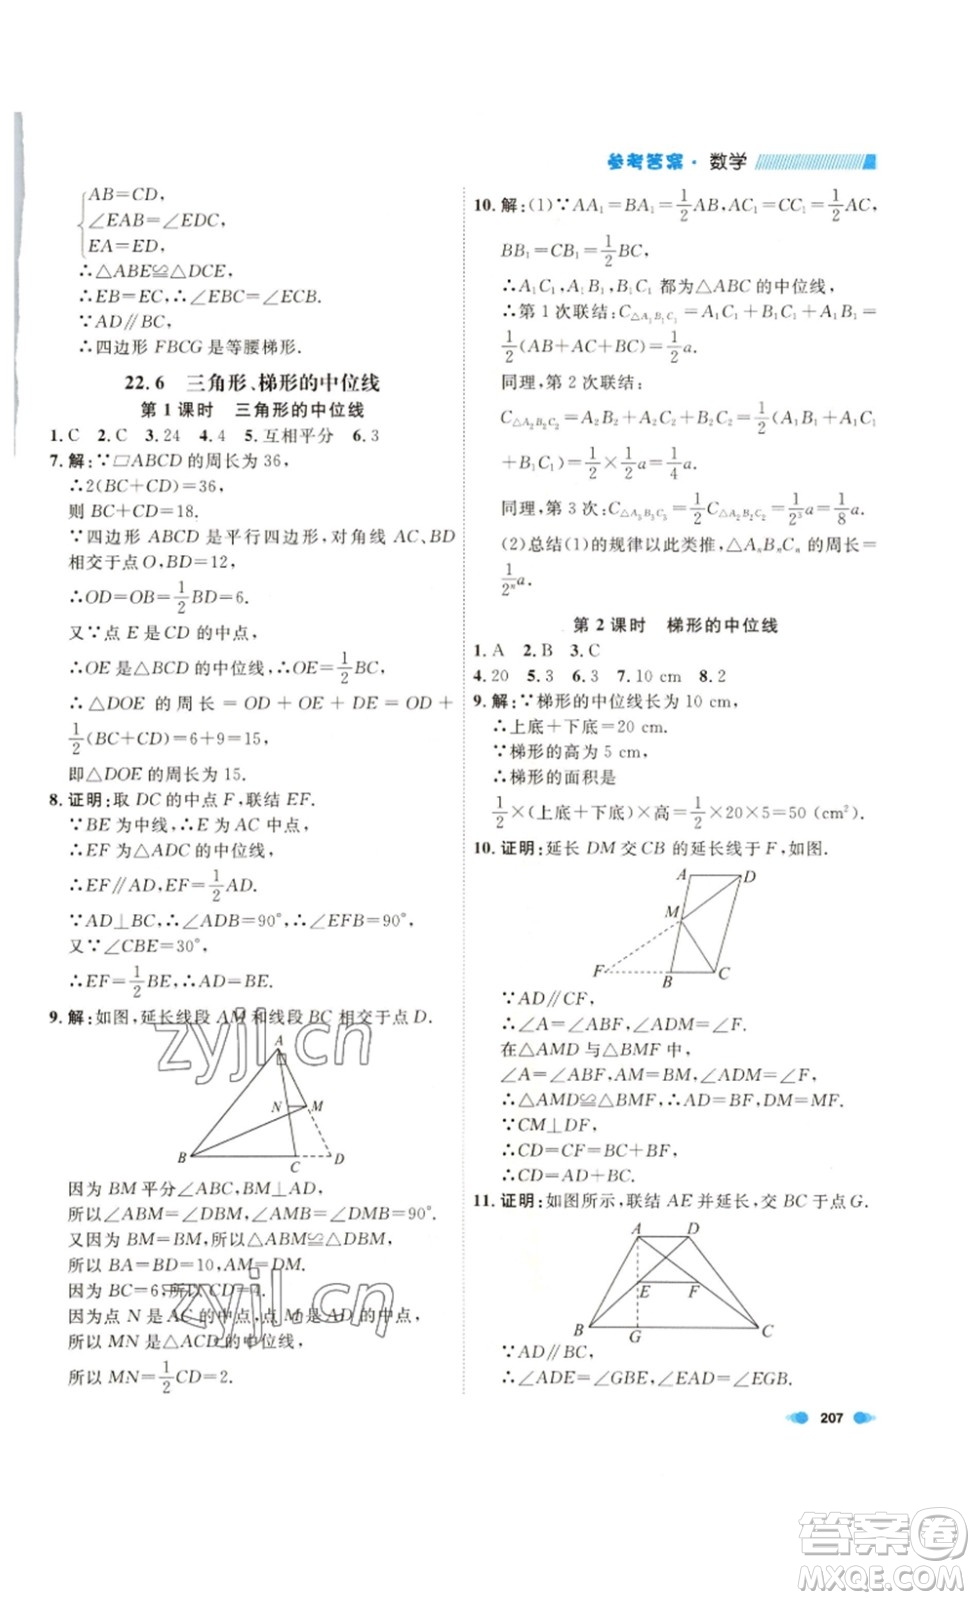 参考答案·数学
AB=CD,
∠EAB=∠EDC,
EA=ED,
∴△ABE≌△DCE.
∴EB=EC,∴∠EBC=∠ECB.
∵AD∥BC,
∴四边形 FBCG 是等腰梯形.
22.6 三角形、梯形的中位线
第 1 课时 三角形的中位线
1. C 2. C 3. 24 4. 4 5. 互相平分 6. 3
7. 解:∵▱ABCD 的周长为 36,
∴2(BC+CD)=36,
则 BC+CD=18.
∵四边形 ABCD 是平行四边形,对角线 AC、BD
相交于点 O,BD=12,
∴OD=OB=1/2BD=6.
又∵点 E 是 CD 的中点,
∴OE 是△BCD 的中位线,∴OE=1/2BC,
∴△DOE 的周长=OD+OE+DE=OD+
1/2(BC+CD)=6+9=15,
即△DOE 的周长为 15.
8. 证明:取 DC 的中点 F,联结 EF.
∵BE 为中线,∴E 为 AC 中点,
∴EF 为△ADC 的中位线,
∴EF∥AD,EF=1/2AD.
∵AD⊥BC,∴∠ADB=90°,∴∠EFB=90°.
又∵∠CBE=30°,
∴EF=1/2BE,∴AD=BE.
9. 解:如图,延长线段 AM 和线段 BC 相交于点 D.
A
N
M
B
C
D
因为 BM 平分∠ABC,BM⊥AD,
所以∠ABM=∠DBM,∠AMB=∠DMB=90°.
又因为 BM=BM,所以△ABM≌△DBM,
所以 BA=BD=10,AM=DM.
因为 BC=6,所以 CD=4.
因为点 N 是 AC 的中点,点 M 是 AD 的中点,
所以 MN 是△ACD 的中位线,
所以 MN=1/2CD=2.
10. 解:(1)∵AA₁=BA₁=1/2AB,AC₁=CC₁=1/2AC,
BB₁=CB₁=1/2BC,
∴A₁C₁、A₁B₁、B₁C₁ 都为△ABC 的中位线,
∴第 1 次联结:C△A₁B₁C₁=A₁C₁+B₁C₁+A₁B₁=
1/2(AB+AC+BC)=1/2a.
同理,第 2 次联结:
C△A₂B₂C₂=A₂B₂+A₂C₂+B₂C₂=1/2(A₁B₁+A₁C₁
+B₁C₁)=1/2×1/2a=1/4a.
同理,第 3 次:C△A₃B₃C₃=1/2C△A₂B₂C₂=1/2³a=1/8a.
(2)总结(1)的规律以此类推,△AₙBₙCₙ 的周长=
1/2ⁿa.
第 2 课时 梯形的中位线
1. A 2. B 3. C
4. 20 5. 3 6. 3 7. 10 cm 8. 2
9. 解:∵梯形的中位线长为 10 cm,
∴上底+下底=20 cm.
∵梯形的高为 5 cm,
∴梯形的面积是
1/2×(上底+下底)×高=1/2×20×5=50 (cm²).
10. 证明:延长 DM 交 CB 的延长线于 F,如图.
A
D
M
F
B
C
∵AD∥CF,
∴∠A=∠FBM,∠ADM=∠F.
在△AMD 与△BMF 中,
∠A=∠FBM,∠ADM=∠F,AM=BM,
∴△AMD≌△BMF.∴AD=BF,DM=MF.
∵CM⊥DF,
∴CD=CF=BC+BF,
∴CD=AD+BC.
11. 证明:如图所示,联结 AE 并延长,交 BC 于点 G.
A
D
E
F
B
G
C
∵AD∥BC,
∴∠ADE=∠GBE,∠EAD=∠EGB.
207
zyjl.cn
zyjl.cn
答案卷
MXQE.COM